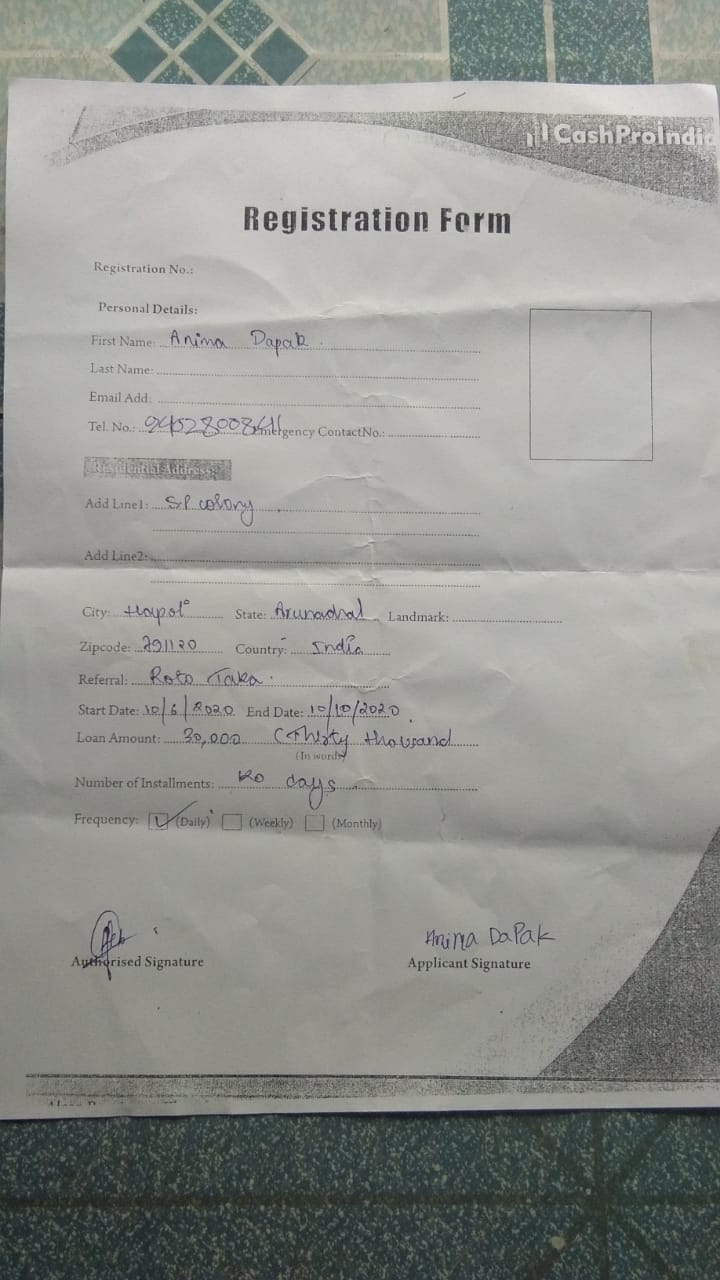 CashProIndia
Registration Form
Registration No.:
Personal Details:
First Name: Anima Dapak
Last Name:
Email Add:
Tel. No.: Emergency ContactNo.:
Residential Address:
Add Line1: SP colony
Add Line2:
City: Hapoli State: Arunachal Landmark:
Zipcode: 791120 Country: India
Referral: Roto Taka
Start Date: 10/6/2020 End Date: 10/10/2020
Loan Amount: 30,000 (Thirty thousand
(In words)
Number of Installments: days
Frequency: (Daily) (Weekly) (Monthly)
Anima DaPak
Authorised Signature Applicant Signature